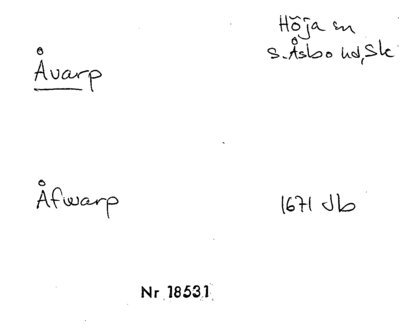 Höja sn
Åvarp S. Åsbo hd, Sk
Åfwarp 1671 Jb
Nr 18531